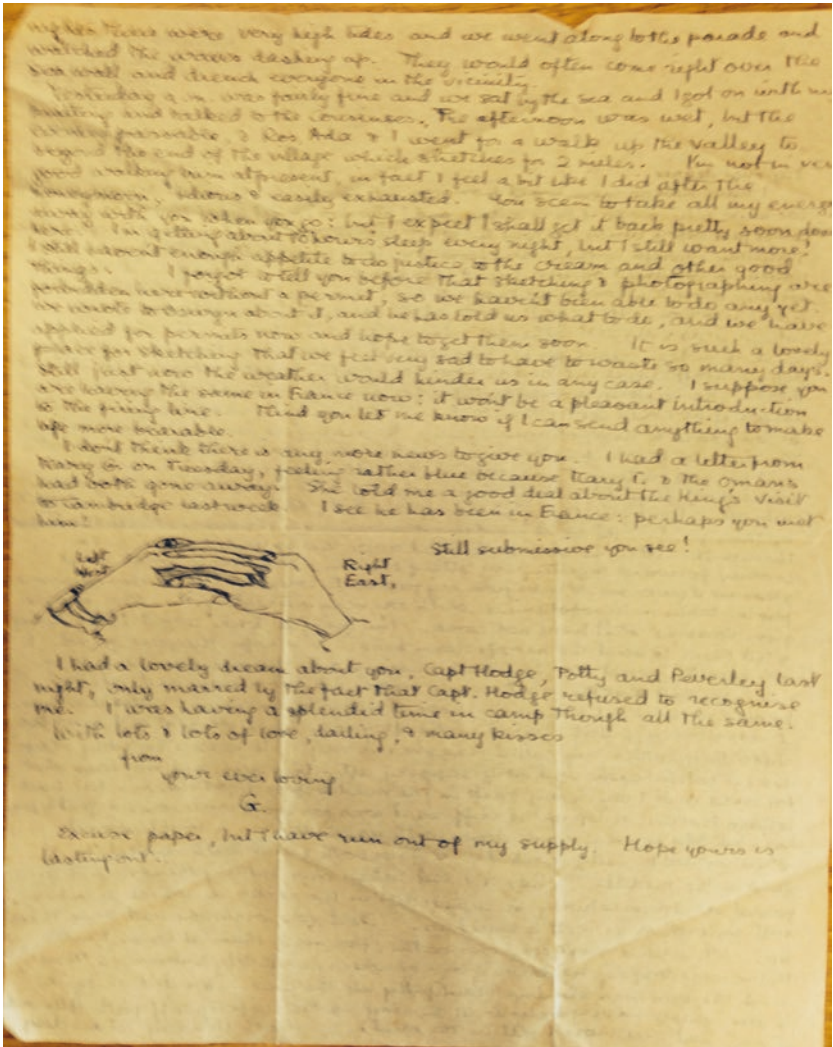 there were very high tides and we went along to the parade and
watched the waves dashing up. They would often come right over the
sea wall and drench everyone in the vicinity.
Yesterday a.m. was fairly fine and we sat by the sea and I got on with my
and talked to the . The afternoon was wet, but the
evening passable, & Ros Ada & I went for a walk up the valley to
beyond the end of the village which stretches for 2 miles. I'm not in very
good walking at present, in fact I feel a bit like I did after the
honeymoon, & easily exhausted. You seem to take all my energy
away with you when you go: but I expect I shall get it back pretty soon down
here. I'm getting about 10 hours sleep every night, but I still want more!
I still haven't enough appetite to do justice to the cream and other good
things. I forgot to tell you before that sketching & photographing are
forbidden here without a permit, so we haven't been able to do any yet.
We wrote to about it, and he has told us what to do, and we have
applied for permits now and hope to get them soon. It is such a lovely
place for sketching that we feel very sad to have to waste so many days.
Still just now the weather would hinder us in any case. I suppose you
are having the same in France now: it wont be a pleasant introduction
to the firing line. Mind you let me know if I can send anything to make
life more bearable.
I dont think there is any more news to give you. I had a letter from
Mary on Tuesday, feeling rather blue because & the Omans
had both gone away. She told me a good deal about the King's visit
to Cambridge last week. I see he has been in France: perhaps you met
him!
Still submissive you see!
Left
West
Right
East,
I had a lovely dream about you, Capt Hodge, Potty and Peverley last
night, only marred by the fact that Capt. Hodge refused to recognise
me. I was having a splendid time in camp though all the same.
With lots & lots of love, darling, & many kisses
from
your ever loving
G.
Excuse paper, but I have run out of my supply. Hope yours is
lasting out.